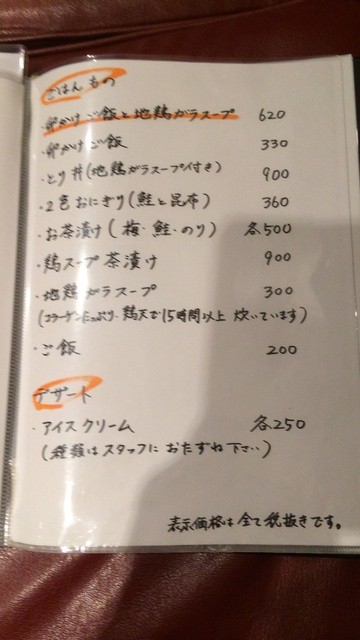 ごはんもの
・卵かけご飯と地鶏ガラスープ 620
・卵かけご飯 330
・とり丼(地鶏ガラスープ付き) 900
・2色おにぎり(鮭と昆布) 360
・お茶漬け(梅・鮭・のり) 各500
・鶏スープ茶漬け 900
・地鶏ガラスープ 300
(コラーゲンたっぷり、鶏天で15時間以上 炊いています)
・ご飯 200
デザート
・アイスクリーム 各250
(種類はスタッフにおたずね下さい)
表示価格は全て税抜きです。